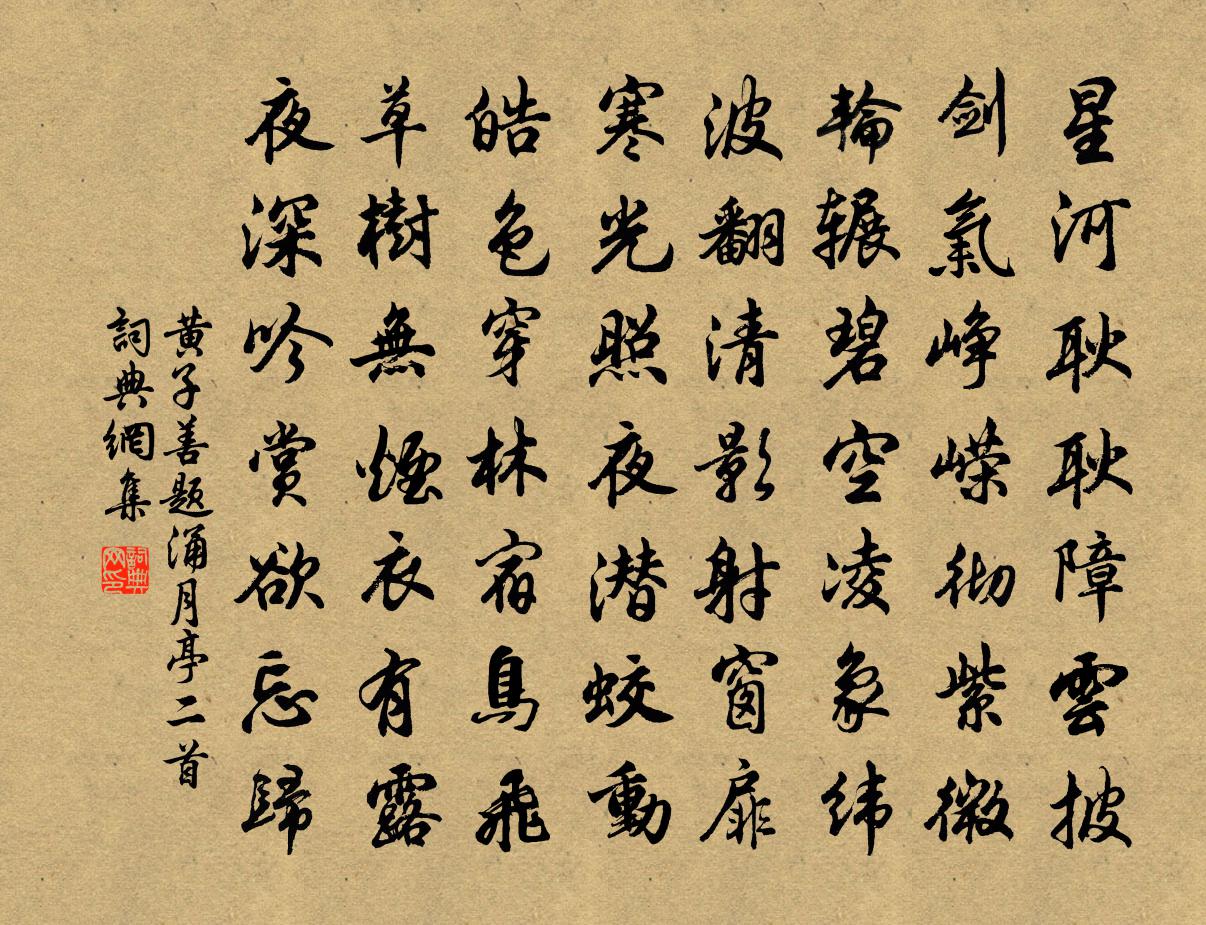 星河耿耿障雲披
劍氣崢嶸徹紫微
輪辗碧空凌象緯
波翻清影射窗扉
寒光照夜潜蛟動
皓色穿林宿鳥飛
草樹無煙衣有露
夜深吟賞欲忘歸
黄子善题涌月亭二首
詞典網集
詞典网印